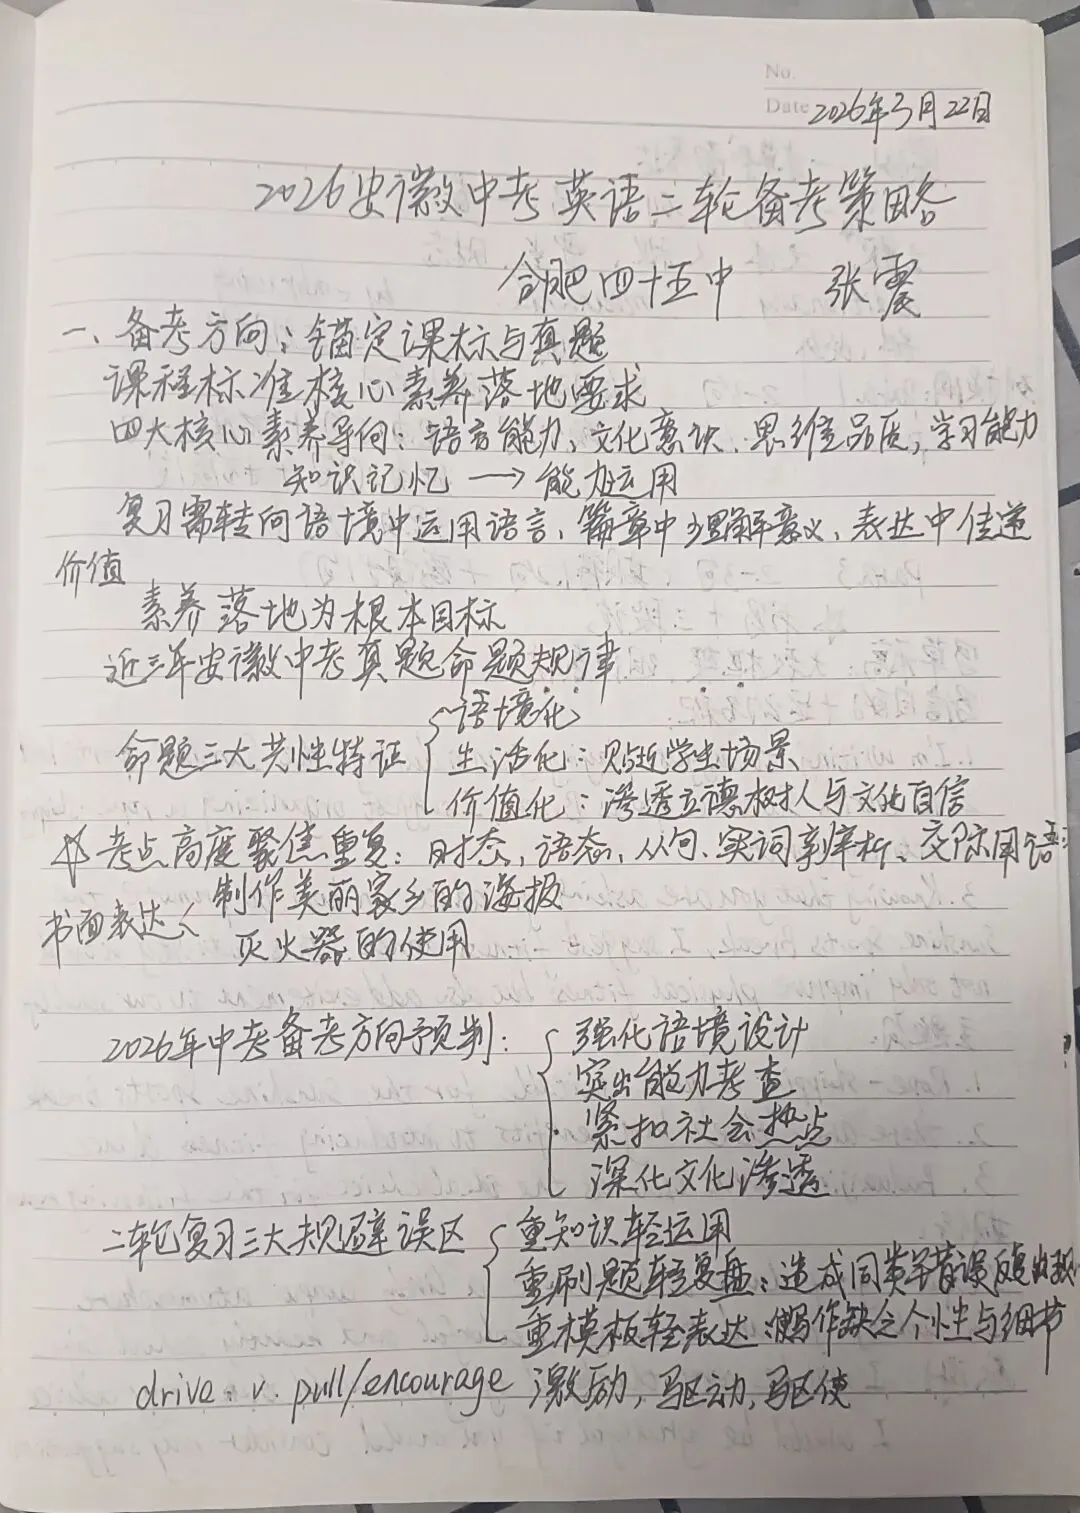 No.
Date 2026年3月22日
2026安徽中考英语二轮备考策略
合肥四十五中 张震
一、备考方向：锚定课标与真题
课程标准核心素养落地要求
四大核心素养导向：语言能力、文化意识、思维品质，学习能力
知识记忆 → 能力运用
复习需转向语境中运用语言、篇章中理解意义、表达中传递
价值
素养落地为根本目标
近三年安徽中考真题命题规律
命题三大共性特征
语境化
生活化：贴近学生场景
价值化：渗透立德树人与文化自信
考点高度聚焦重复：时态，语态，从句、实词辨析、交际用语
书面表达
制作美丽家乡的海报
灭火器的使用
2026年中考备考方向预判：
强化语境设计
突出能力考查
紧扣社会热点
深化文化渗透
二轮复习三大规避误区
重知识轻运用
重刷题轻复盘：造成同类错误反复出现
重模板轻表达：写作缺乏个性与细节
drive: v. pull/encourage 激励，驱动，驱使